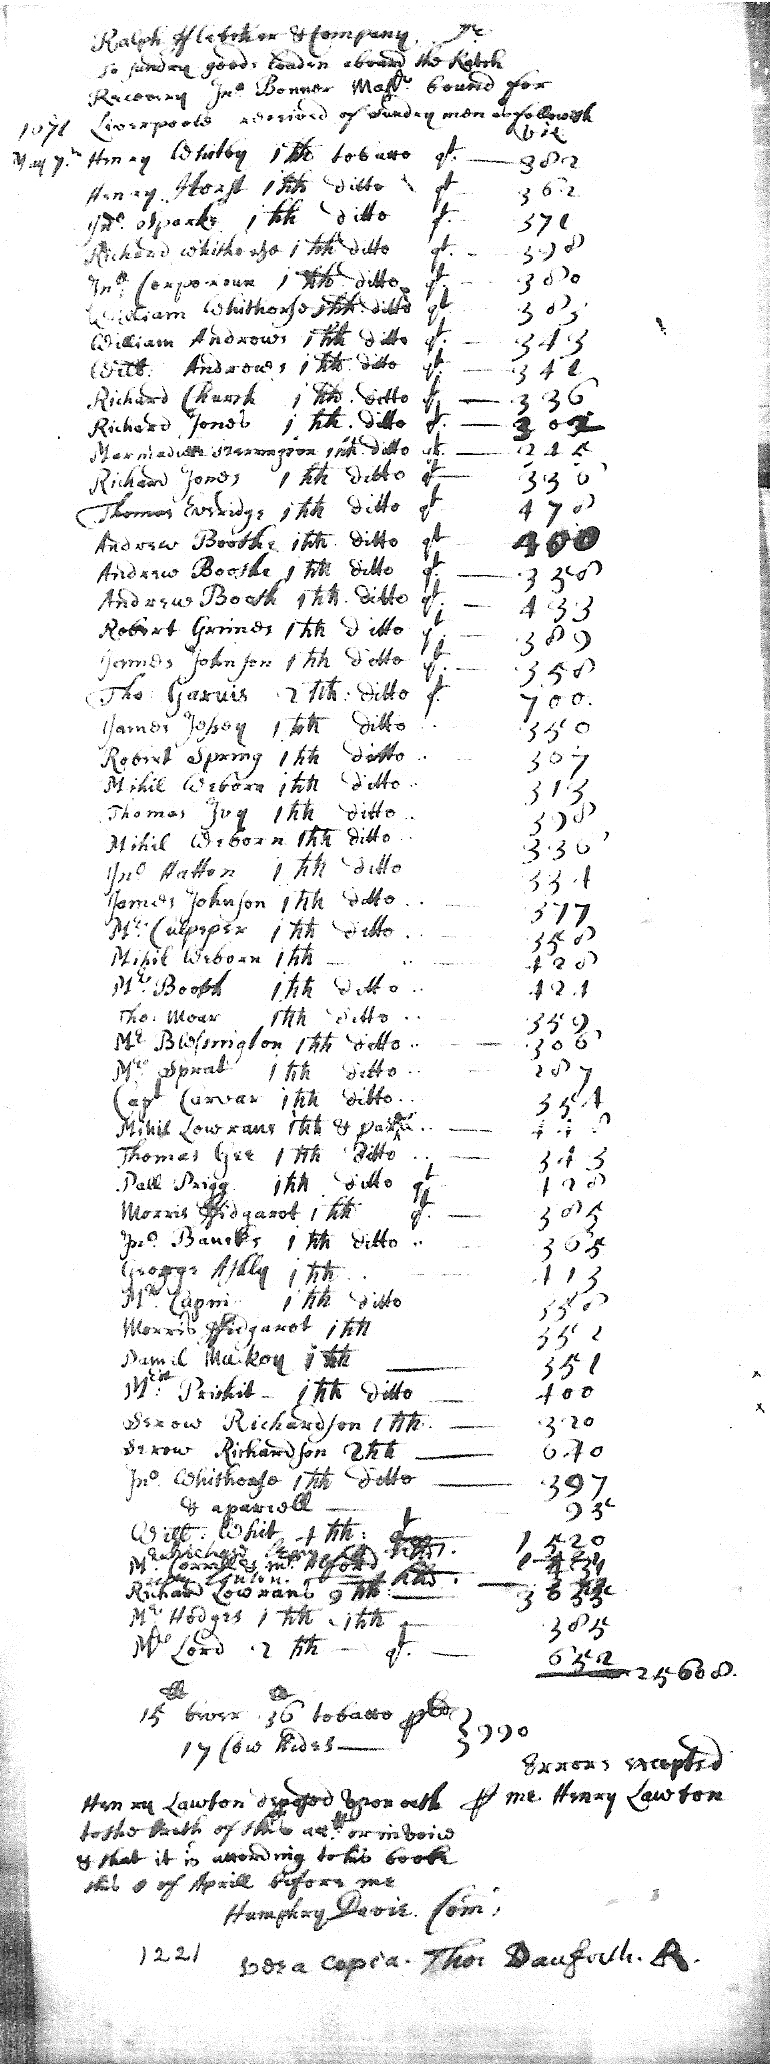 Ralph ffletcher & Company Dr.
To sundry goods loaden aboard the Ketch
Recovery Jno. Bonner Mastr. bound for
Liverpoole received of sundry men as followeth
1671 viz
May 7th Henry Whitby 1 hh tobacco qt. — 382
Henry Horst 1 hh ditto qt 362
Jno. Sparks 1 hh ditto qt. 371
Richard Whithorse 1 hh ditto qt. - 398
Jno. Corporour 1 hh ditto qt. - 380
William Whithorse 1 hh ditto qt 383
William Androws 1 hh ditto qt. - 343
Will: Androws 1 hh ditto qt. - 342
Richard Church 1 hh. ditto qt — 336
Richard Jones 1 hh. ditto qt. — 302
1 hh ditto qt. — 245
Richard Jones 1 hh ditto qt — 336
Thomas Everidge 1 hh ditto qt 478
Andrew Boothe 1 hh ditto qt 400
Andrew Boothe 1 hh ditto qt — 338
Andrew Booth 1 hh. ditto qt. — 433
Robert Grimes 1 hh ditto qt. — 389
James Johnson 1 hh ditto qt. — 358
Tho: Garvis 2 hh: ditto qt. 700.
James Jesey 1 hh ditto .. 350
Robert Spring 1 hh ditto .. 307
Mihil Weborn 1 hh ditto .. 313
Thomas Ivy 1 hh ditto .. 398
Mihil Weborn 1 hh ditto .. 336
Jno. Hatton 1 hh ditto 334
James Johnson 1 hh ditto .. 377
Mr. Culpeper 1 hh ditto .. 358
Mihil Weborn 1 hh — .. 428
Mr. Booth 1 hh ditto .. 424
Tho: Moar 1 hh ditto .. 359
Mr. Blessington 1 hh ditto .. — 306
Mr. Sprat 1 hh ditto 287
Capt Carvar 1 hh ditto .. 354
Mihil Lowrans 1 hh & .. —
Thomas Gee 1 hh ditto .. — 343
Pall Prigg 1 hh ditto qt 428
Morris ffidgarot 1 hh qt. — 385
Jno. Bancks 1 hh ditto .. 365
George Ashly 1 hh .. 413
Mr. 1 hh ditto 358
Morris ffidgarot 1 hh 352
Daniel Mackoy 1 hh — 351
Prishit - 1 hh ditto — 400
Serow Richardson 1 hh. — 320
Serow Richardson 2 hh — 640
Jno. Whithorse 1 hh ditto — 397
& a parcell — 93
Will: Whit 4 hh: qt 1520
Richard Lowrans 9 hh: —
Mr. Hodges 1 hh 385
Mr. Lord 2 hh — qt. — 652
25608.
15 bever 36 tobacco
17 Cow hides — } 990
Errors excepted
Henry Lawton deposed upon oath p me Henry Lawton
to the truth of this acctt. or invoice
& that it is according to his book
this 8 of Aprill before me
Humphry Davie. Comi:
1221 vera copia. Tho: Danforth. R.